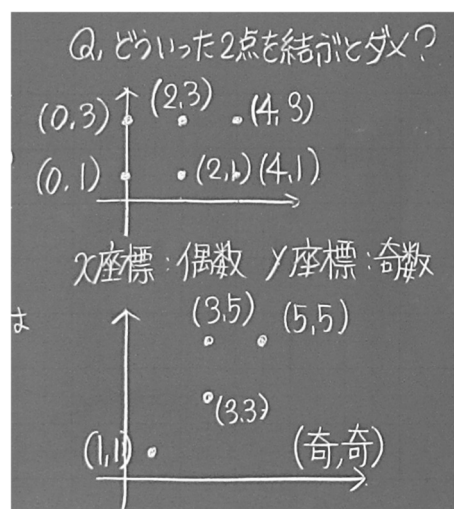 Q, どういった2点を結ぶとダメ?
(0,3) (2,3) (4,3)
(0,1) (2,1) (4,1)
x座標:偶数 y座標:奇数
は
(3,5) (5,5)
(3,3)
(1,1) (奇,奇)